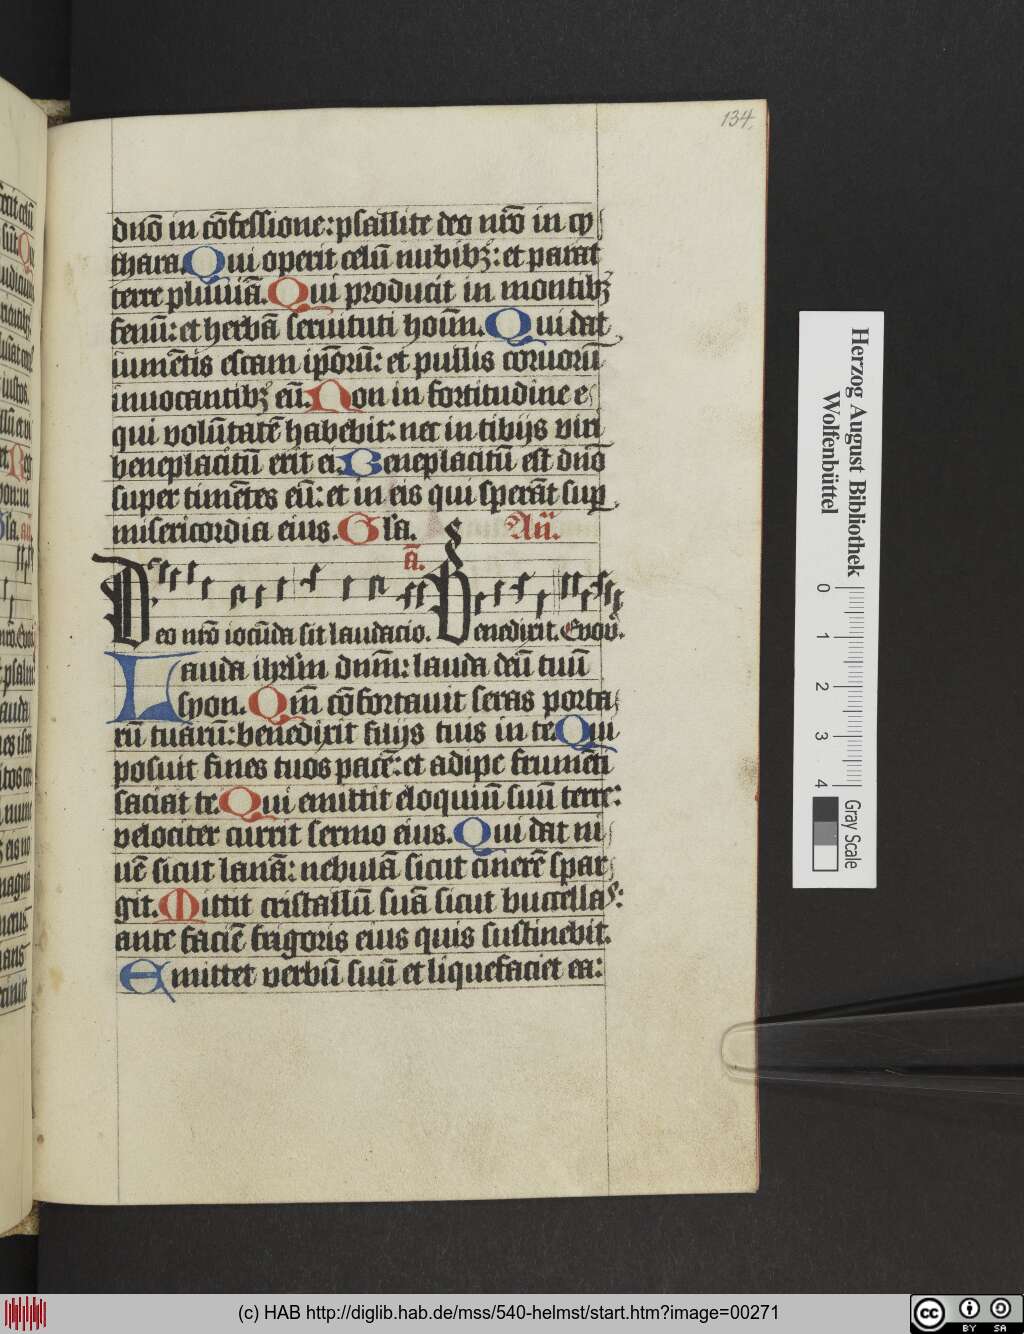 134.
dnō in cōfessione: psallite deo nr̄o in cy
thara. Qui operit celū nubibꝫ: et parat
terre pluuiā. Qui producit in montibꝫ
fenū: et herbā seruituti hoīm. Qui dat
iumētis escam ipōrū: et pullis coruorū
inuocantibꝫ eū. Non in fortitudine e
qui volūtatē habebit: nec in tibijs viri
beneplacitū erit ei. Beneplacitū est dnō
super timētes eū: et in eis qui sperāt suꝑ
misericordia eius. Gl̄a. Añ.
a̅.
Deo nr̄o iocūda sit laudacio. Benedixit. Evovē.
Lauda ihrl̄m dnm̄: lauda deū tuū
syon. Qm̄ cōfortauit seras porta
rū tuarū: benedixit filijs tuis in te. Qui
posuit fines tuos pacē: et adipe frumēti
saciat te. Qui emittit eloquiū suū terre:
velociter currit sermo eius. Qui dat ni
uē sicut lanā: nebulā sicut cinerē spar
git. Mittit cristallū suā sicut buccellas:
ante faciē frigoris eius quis sustinebit.
Emittet verbū suū et liquefaciet ea:
Herzog August Bibliothek
Wolfenbüttel
0 1 2 3 4
Gray Scale
(c) HAB http://diglib.hab.de/mss/540-helmst/start.htm?image=00271
cc BY SA